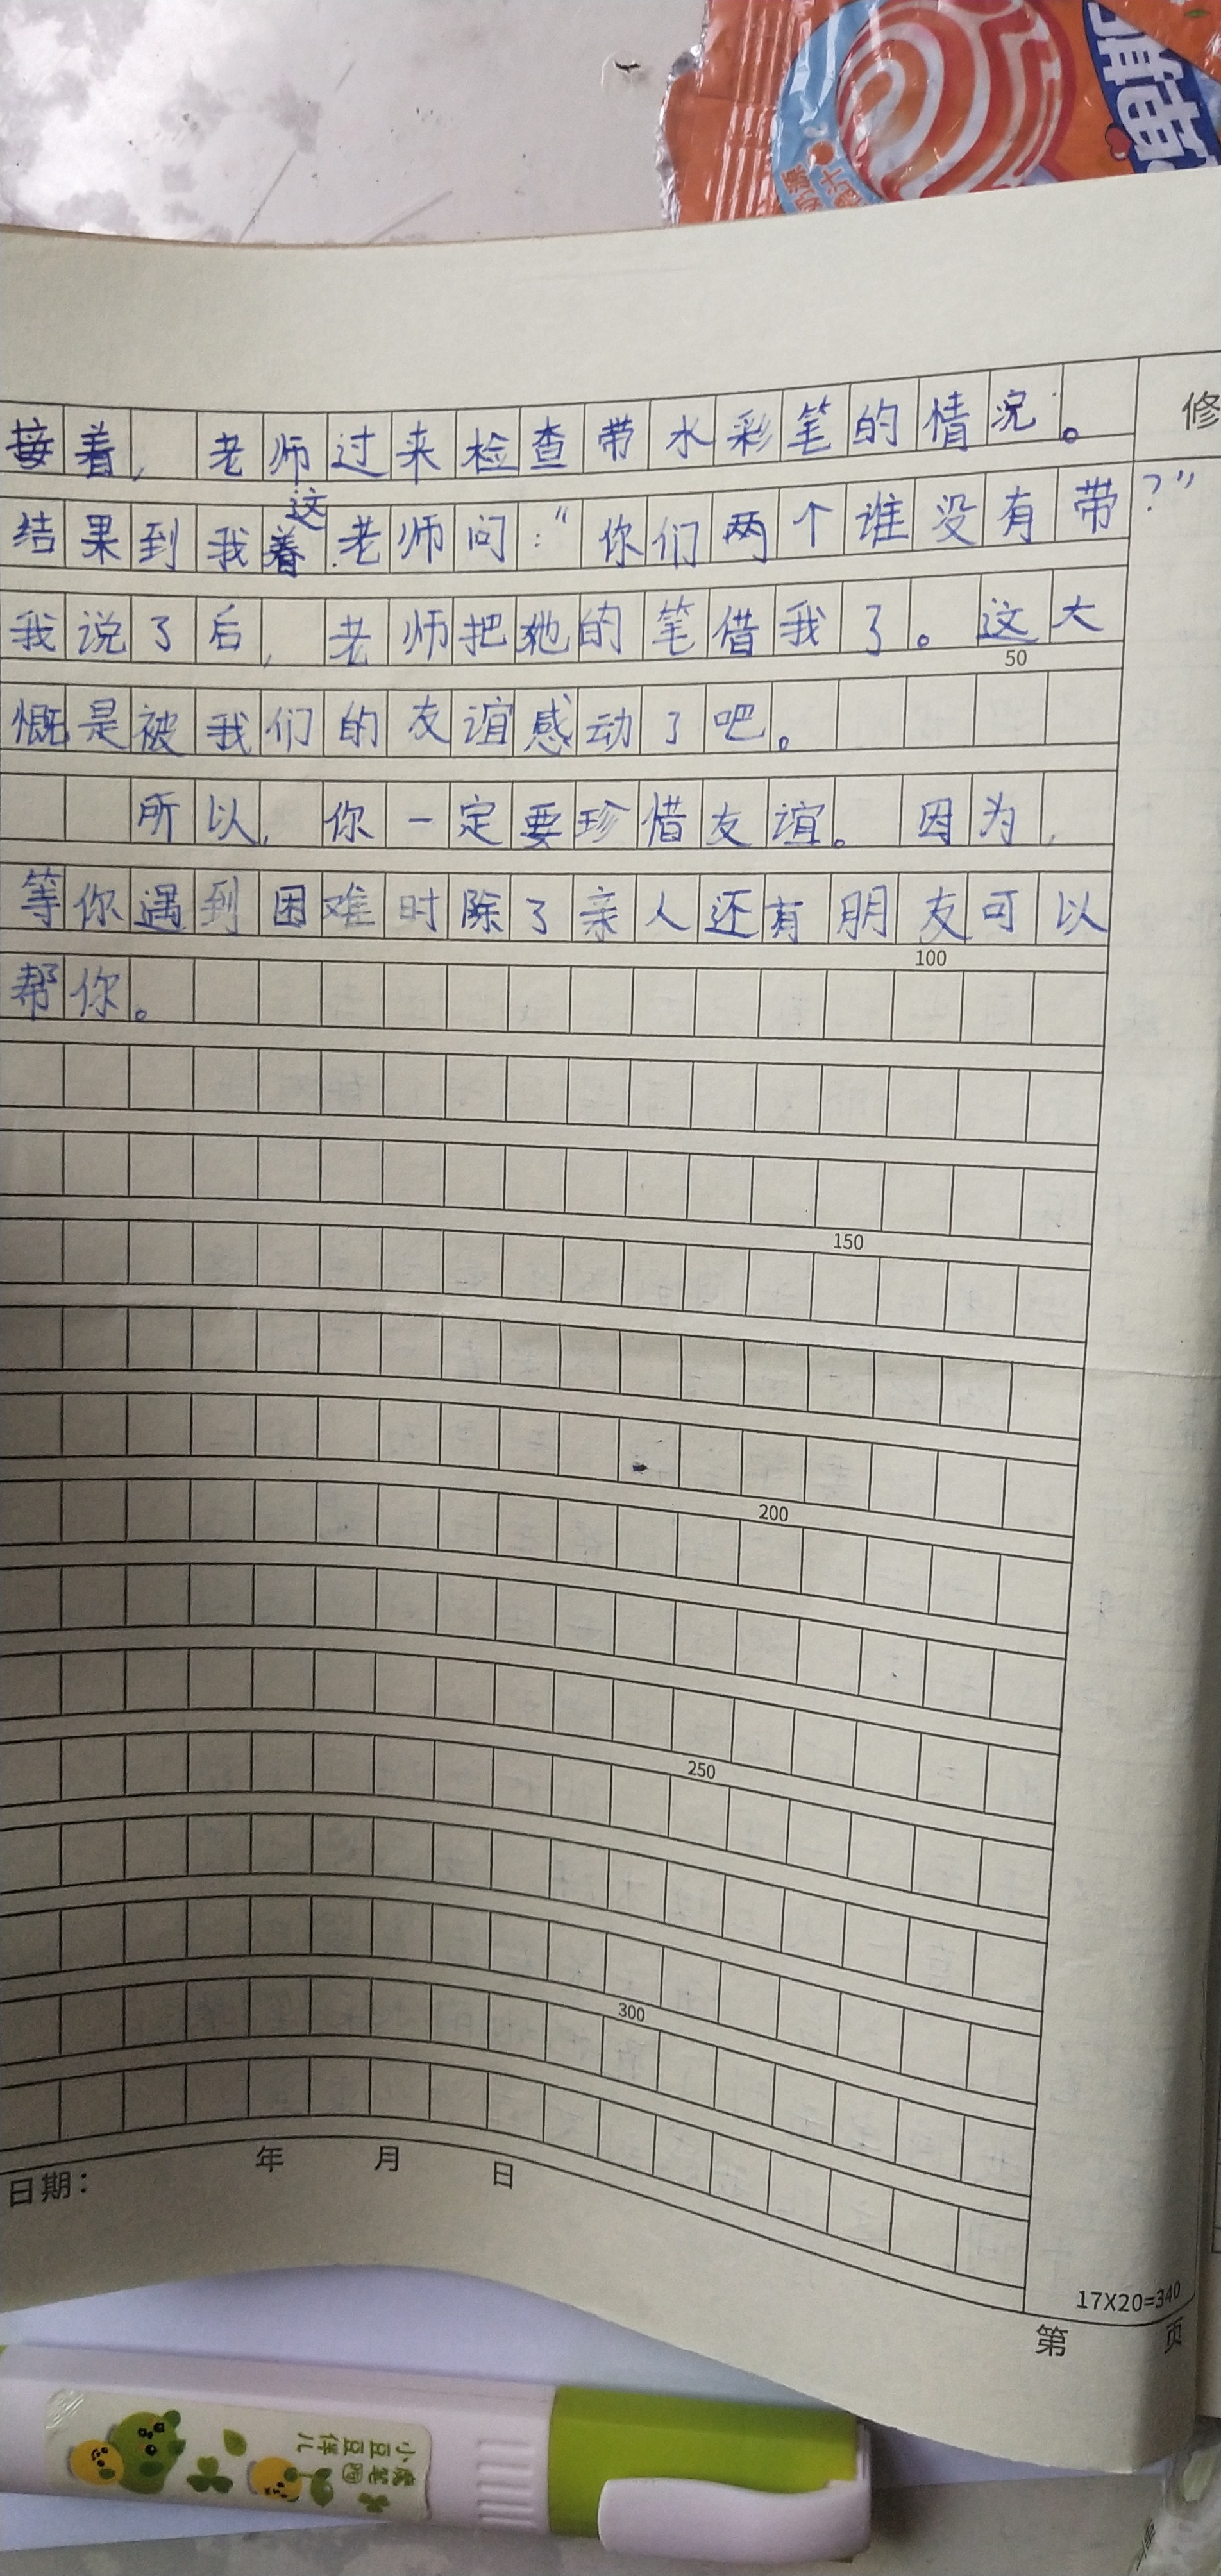 接着,老师过来检查带水彩笔的情况。
修
这
结果到我着老师问:“你们两个谁没有带?”
我说了后,老师把她的笔借我了。这大
50
慨是被我们的友谊感动了吧。
所以,你一定要珍惜友谊。因为,
等你遇到困难时除了亲人还有朋友可以
100
帮你。
150
200
250
300
日期: 年 月 日
17X20=340
第 页
小豆豆伴儿